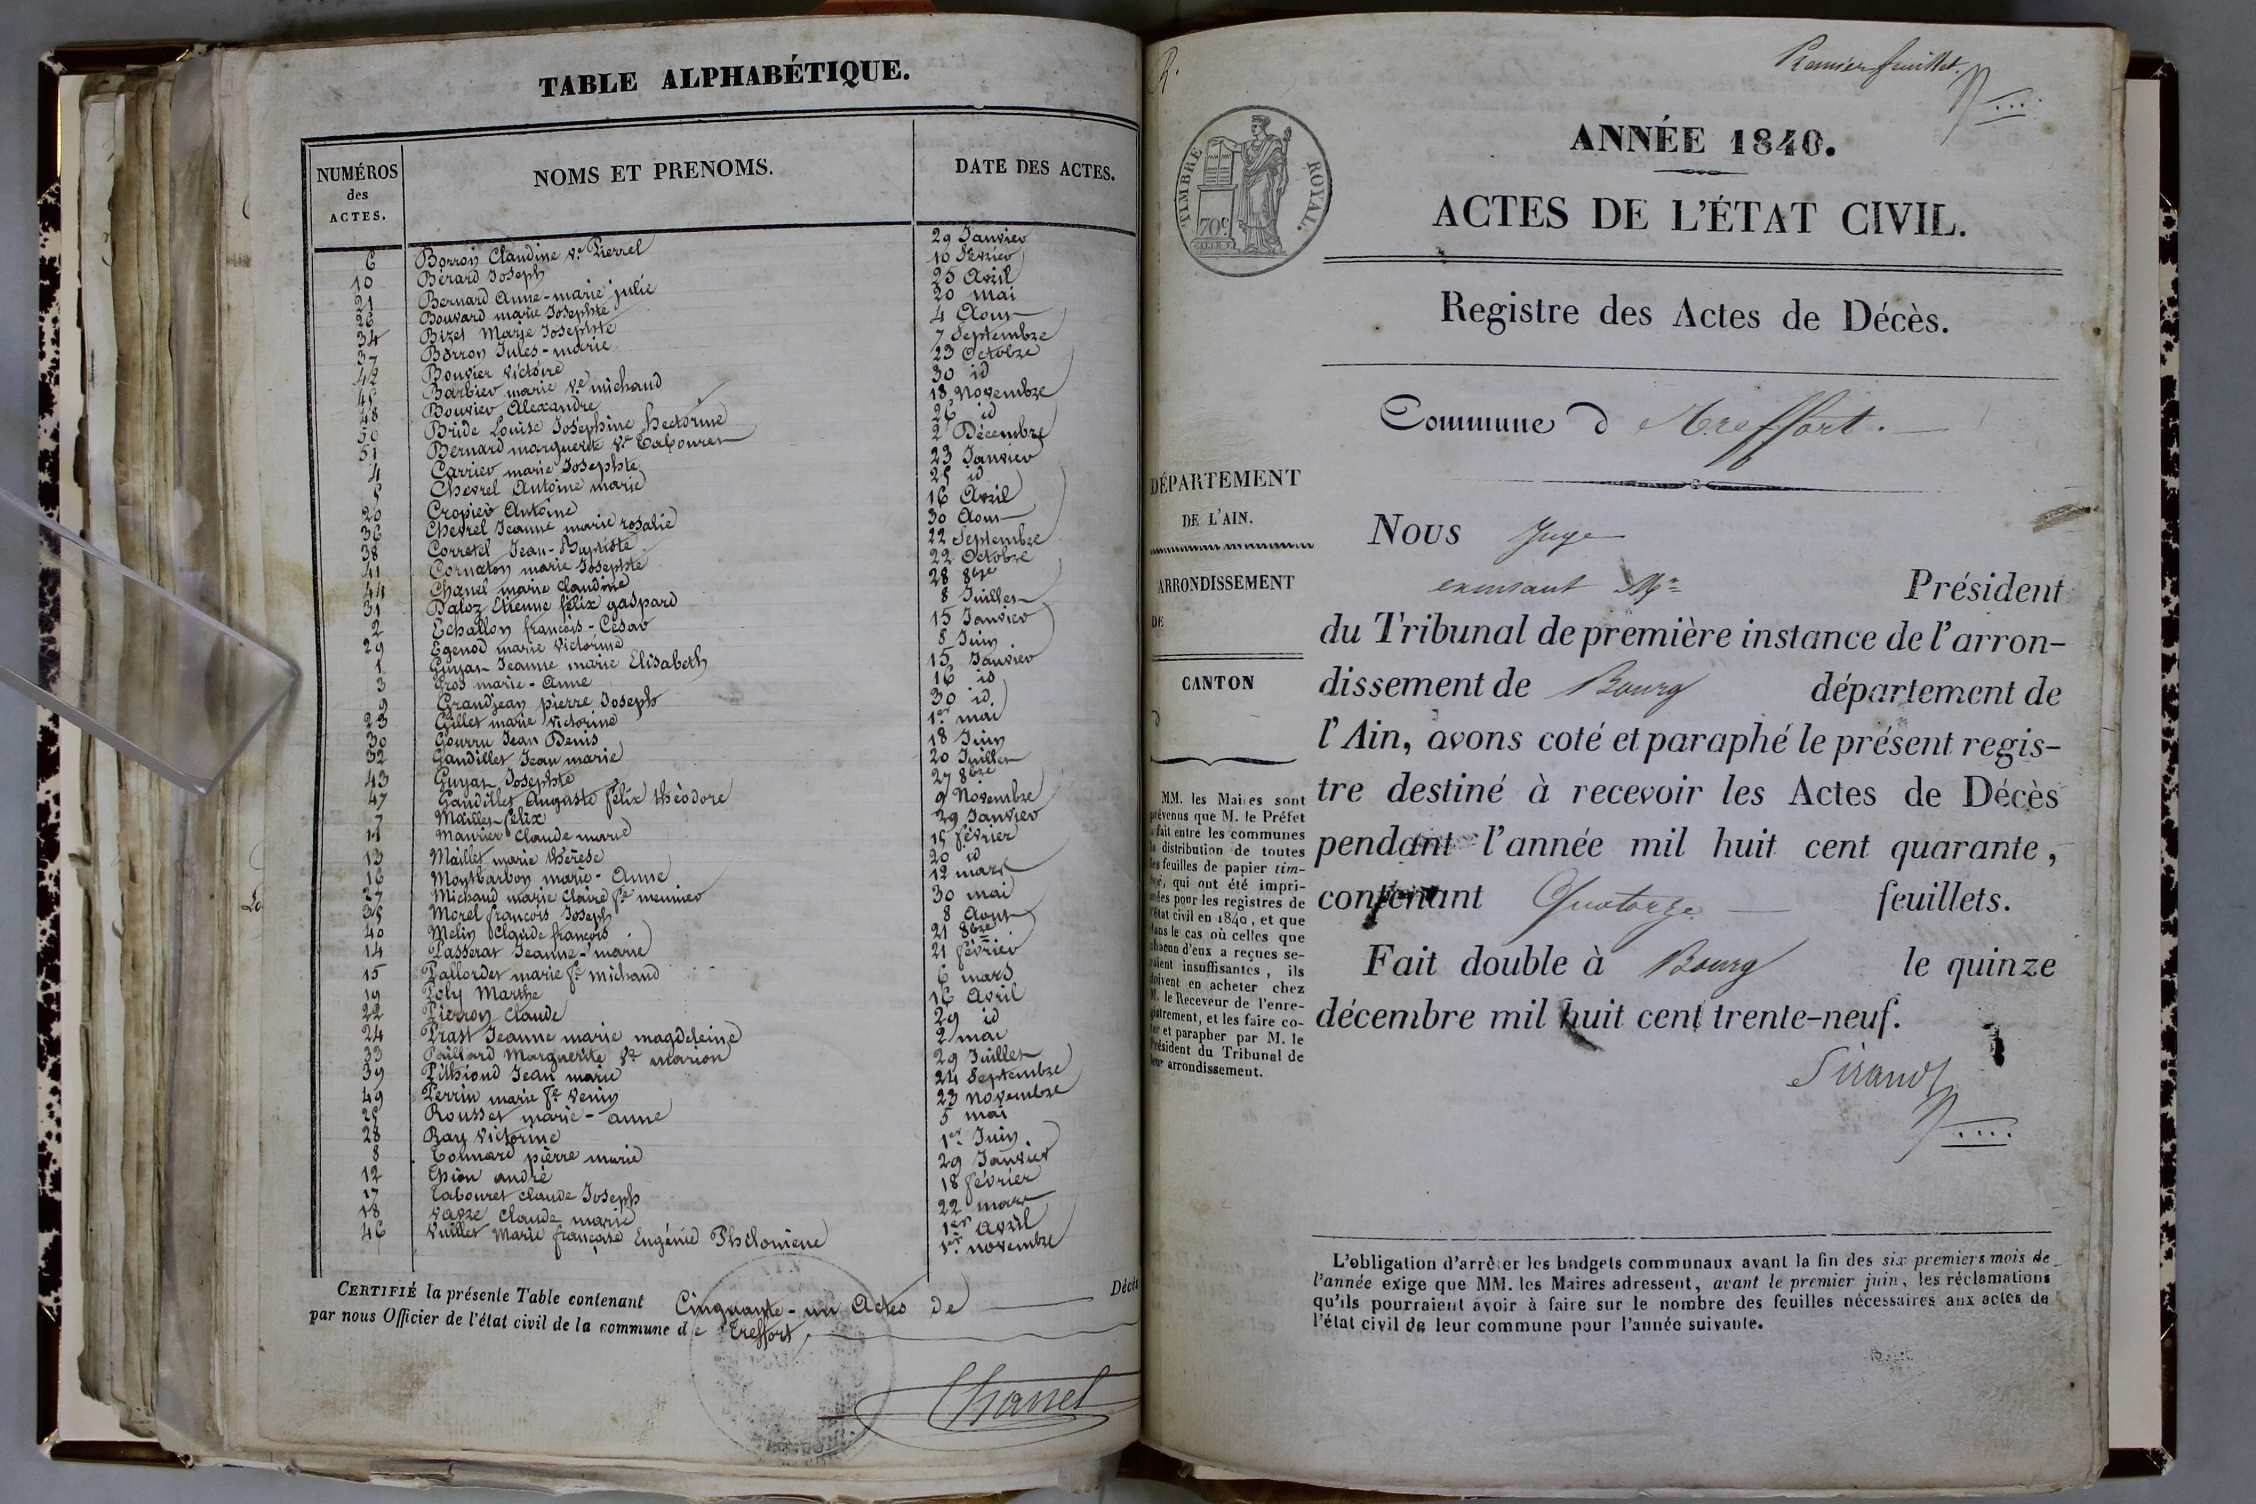 TABLE ALPHABÉTIQUE.
NUMÉROS des ACTES. NOMS ET PRENOMS. DATE DES ACTES.
6 Borron Claudine ve Pierrel 29 Janvier
10 Bérard Joseph 10 Février
21 Bernard Anne-marie julie 25 Avril
26 Bouvard marie Josephte 20 mai
34 Bizet Marie Josephte 4 Aout
37 Borron Jules-marie 7 Septembre
42 Bouvier victoire 23 Octobre
45 Barbier marie ve michaud 30 id
48 Bouvier Alexandre 18 Novembre
50 Bride Louise Joséphine hectorine 26 id
51 Bernard marguerite ve Tabouret 2 Décembre
4 Carrier marie Josephte 23 Janvier
5 Chevrel Antoine marie 25 id
20 Cropier Antoine 16 Avril
36 Chevrel Jeanne marie rosalie 30 Aout
38 Corretel Jean-Baptiste 22 Septembre
41 Cornaton marie Josephte 22 Octobre
44 Chanel marie claudine 28 8bre
31 Daloz Etienne félix gaspard 8 Juillet
2 Echallon françois-César 15 Janvier
29 Egenod marie victorine 8 Juin
1 Guyat Jeanne marie Elisabeth 15 Janvier
3 Gros marie-Anne 16 id
9 Grandjean pierre Joseph 30 id.
23 Gillet marie victorine 1er mai
30 Gourru Jean Denis 18 Juin
32 Gaudillet Jean marie 20 Juillet
43 Guyat Josephte 27 8bre
47 Gaudillet Auguste félix théodore 9 Novembre
7 Maillet félix 29 Janvier
11 Maurier Claude marie 15 février
13 Maillet marie thérèse 20 id
16 Montbarbon marie-Anne 12 mars
27 Michaud marie Claire fe meunier 30 mai
35 Morel françois Joseph 8 Aout
40 Melin Claude françois 21 8bre
14 Passerat Jeanne-marie 21 février
15 Pallordet marie fe michaud 6 mars
19 Poly Marthe 16 Avril
22 Pierron Claude 29 id
24 Prast Jeanne marie magdeleine 2 mai
33 Paillard Marguerite ve marion 29 Juillet
39 Pithioud Jean marie 24 Septembre
49 Perrin marie fe venin 23 novembre
25 Rousset marie-anne 5 mai
28 Ray victorine 1er Juin
8 Tonnard pierre marie 29 Janvier
12 Thion andré 18 février
17 Tabouret claude Joseph 22 mars
18 Vavre Claude marie 1er avril
46 Vuillet Marie françoise Eugénie Philomène 1er novembre
CERTIFIÉ la présente Table contenant Cinquante-un Actes de Décès
par nous Officier de l'état civil de la commune de Treffort.
Chanel
Premier feuillet.
TIMBRE ROYAL.
70c
ANNÉE 1840.
ACTES DE L'ÉTAT CIVIL.
Registre des Actes de Décès.
Commune d Treffort.
DÉPARTEMENT
DE L'AIN.
ARRONDISSEMENT
DE
CANTON
d
MM. les Maires sont
prévenus que M. le Préfet
a fait entre les communes
la distribution de toutes
les feuilles de papier tim-
bré, qui ont été impri-
mées pour les registres de
l'état civil en 1840, et que
dans le cas où celles que
chacun d'eux a reçues se-
raient insuffisantes, ils
doivent en acheter chez
M. le Receveur de l'enre-
gistrement, et les faire co-
ter et parapher par M. le
Président du Tribunal de
leur arrondissement.
Nous Juge
excusant Mr Président
du Tribunal de première instance de l'arron-
dissement de Bourg département de
l'Ain, avons coté et paraphé le présent regis-
tre destiné à recevoir les Actes de Décès
pendant l'année mil huit cent quarante,
contenant Quatorze feuillets.
Fait double à Bourg le quinze
décembre mil huit cent trente-neuf.
Sirand
L'obligation d'arrêter les budgets communaux avant la fin des six premiers mois de
l'année exige que MM. les Maires adressent, avant le premier juin, les réclamations
qu'ils pourraient avoir à faire sur le nombre des feuilles nécessaires aux actes de
l'état civil de leur commune pour l'année suivante.